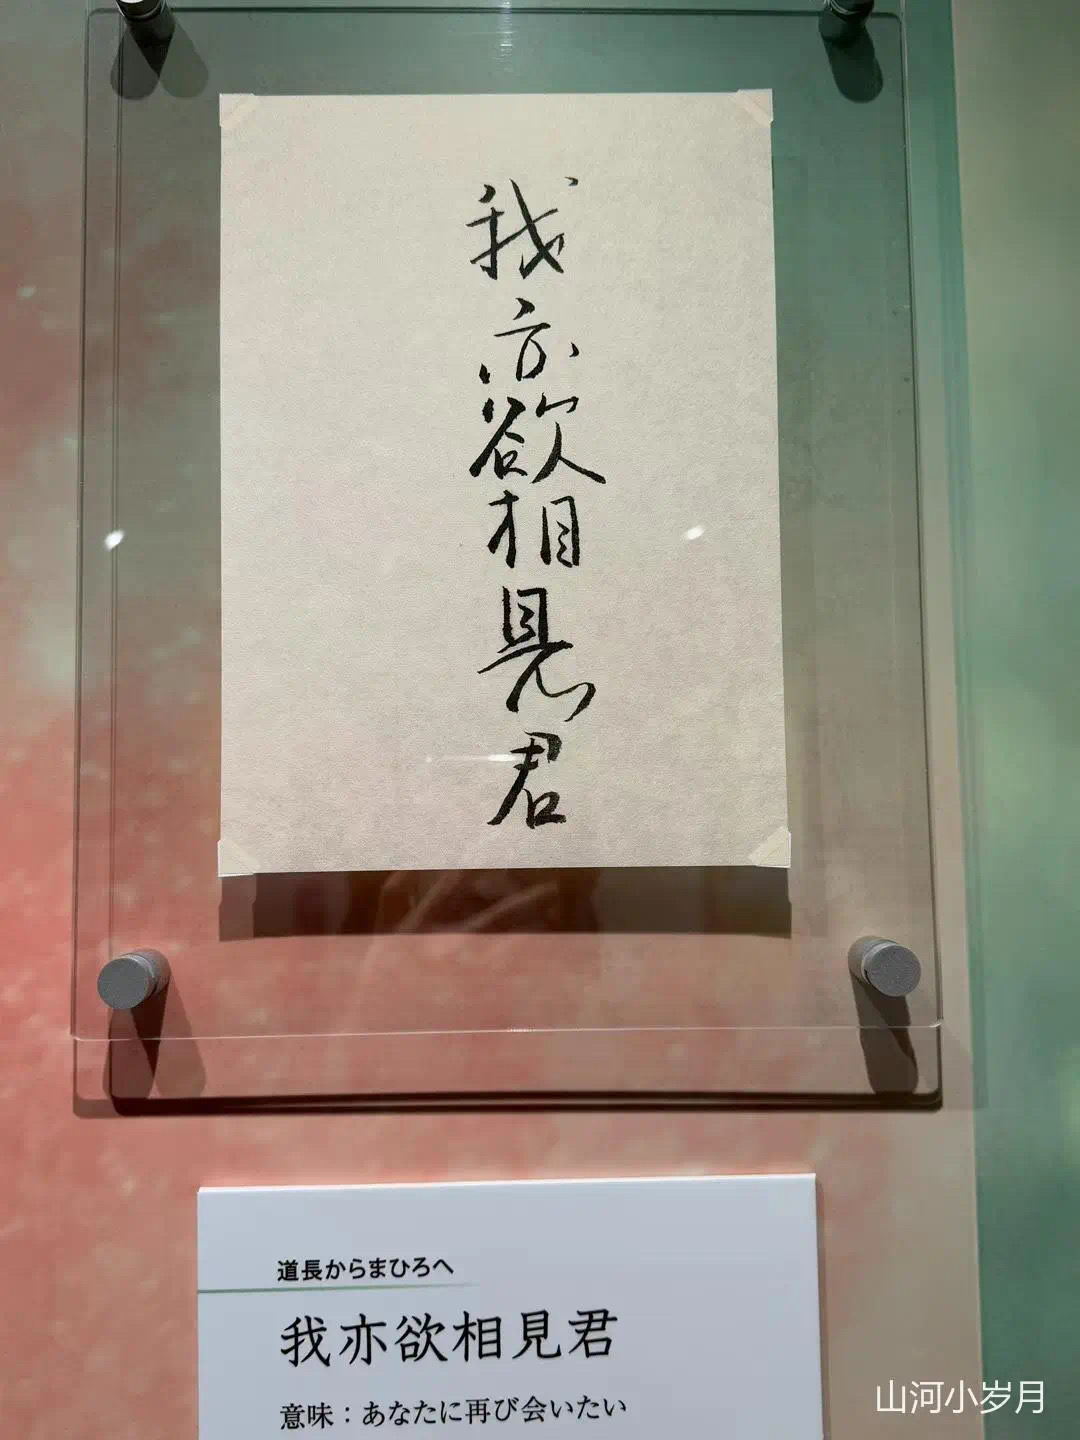 我亦欲相見君
道長からまひろへ
我亦欲相見君
意味：あなたに再び会いたい
山河小岁月